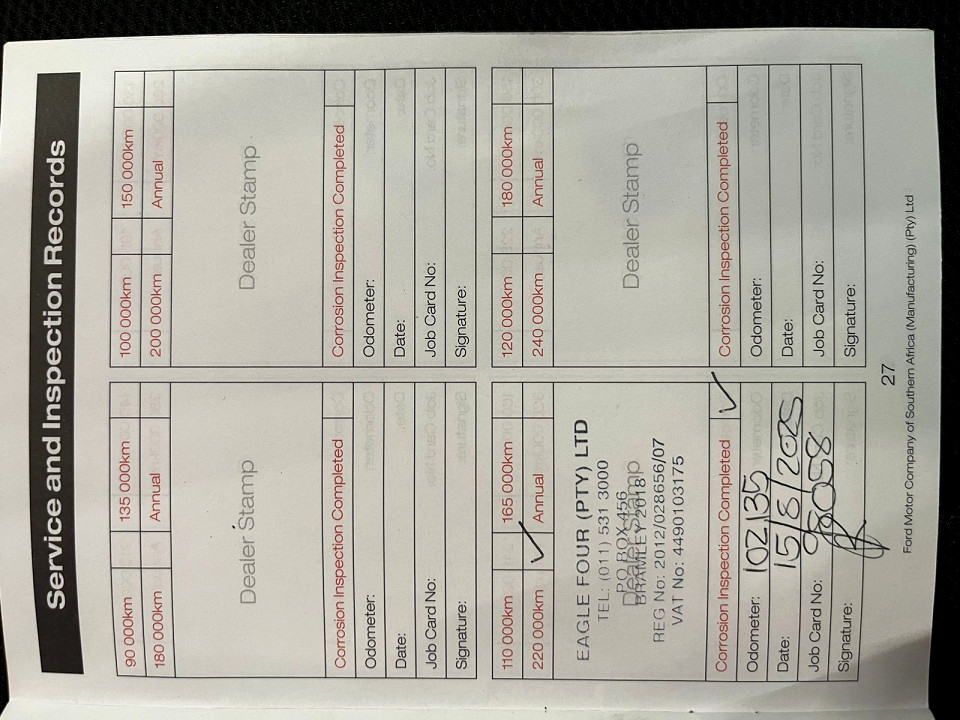 Service and Inspection Records
90 000km 135 000km
180 000km Annual
Dealer Stamp
Corrosion Inspection Completed
Odometer:
Date:
Job Card No:
Signature:
100 000km 150 000km
200 000km Annual
Dealer Stamp
Corrosion Inspection Completed
Odometer:
Date:
Job Card No:
Signature:
110 000km 165 000km
220 000km ✓ Annual
EAGLE FOUR (PTY) LTD
TEL: (011) 531 3000
P O BOX 456
Dealer Stamp
BRAMLEY 2018
REG No: 2012/028656/07
VAT No: 4490103175
Corrosion Inspection Completed ✓
Odometer: 102135
Date: 15/8/2025
Job Card No: 98058
Signature:
120 000km 180 000km
240 000km Annual
Dealer Stamp
Corrosion Inspection Completed
Odometer:
Date:
Job Card No:
Signature:
27
Ford Motor Company of Southern Africa (Manufacturing) (Pty) Ltd